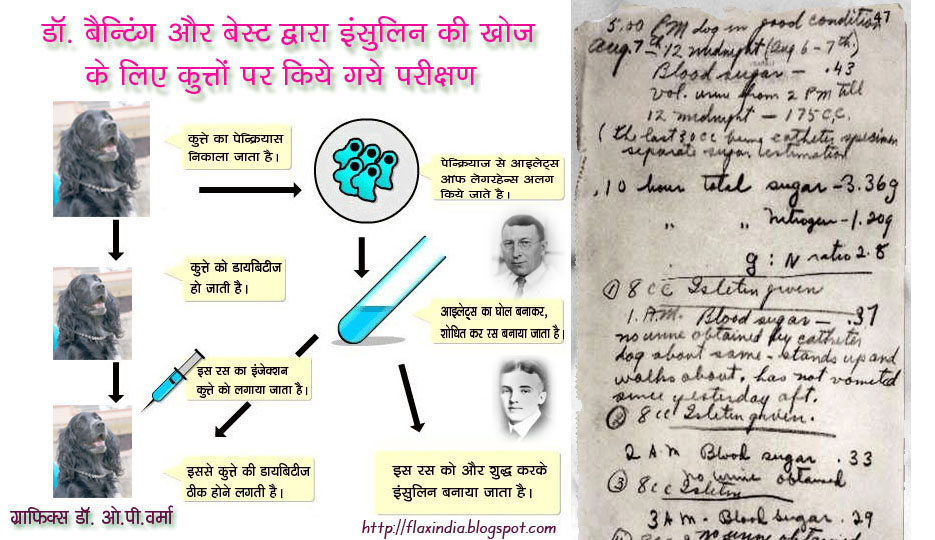 डॉ. बैन्टिंग और बेस्ट द्वारा इंसुलिन की खोज
के लिए कुत्तों पर किये गये परीक्षण
कुत्ते का पेन्क्रियास
निकाला जाता है।
पेन्क्रियाज से आइलेट्स
ऑफ लेगरहेन्स अलग
किये जाते है।
कुत्ते को डायबिटीज
हो जाती है।
आइलेट्स का घोल बनाकर,
शोधित कर रस बनाया जाता है।
इस रस का इंजेक्शन
कुत्ते को लगाया जाता है।
इससे कुत्ते की डायबिटीज
ठीक होने लगती है।
इस रस को और शुद्ध करके
इंसुलिन बनाया जाता है।
ग्राफिक्स डॉ. ओ.पी.वर्मा
http://flaxindia.blogspot.com
47
5.00 PM dog in good condition
Aug. 7th 12 midnight (Aug 6-7th.)
Blood sugar - .43
vol. urine from 2 PM till
12 midnight - 175 C.C.
(the last 30 cc being catheter specimen
separate sugar estimation
10 hour total sugar - 3.36g
" " Nitrogen - 1.20g
G : N ratio 2.8
① 8 CC Isletin given
1. A.M. Blood sugar - .37
no urine obtained by catheter
dog about same - stands up and
walks about, has not vomited
since yesterday aft.
② 8 cc Isletin given.
2 A.M Blood sugar . 33
no urine obtained
③ 8 cc Isletin
3 A M - Blood sugar . 29
no urine obtained